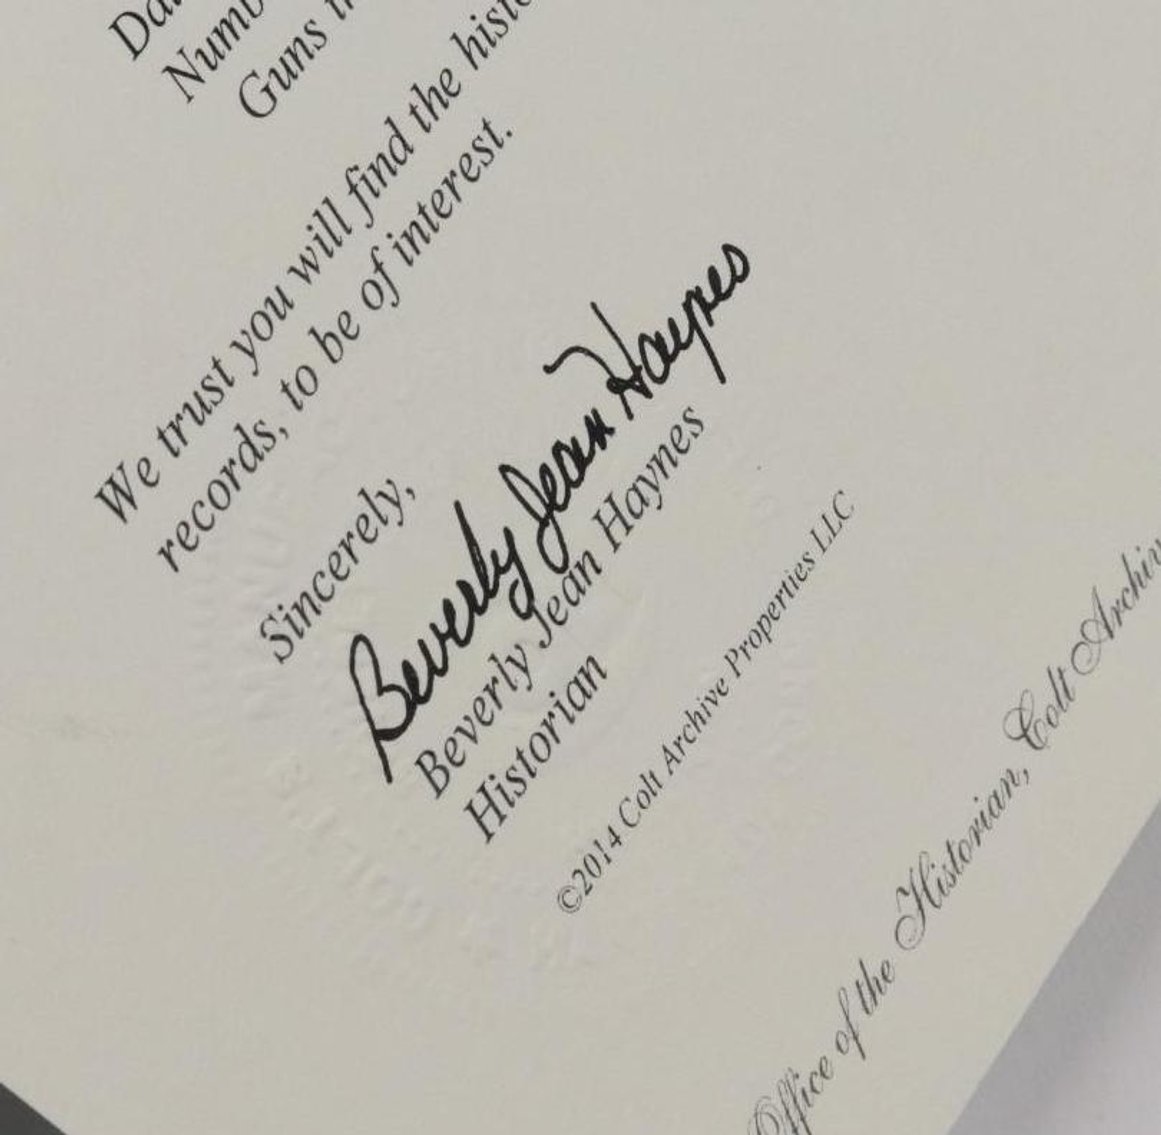 Numb
Guns
We trust you will find the histo
records, to be of interest.
Sincerely,
Beverly Jean Haynes
Beverly Jean Haynes
Historian
©2014 Colt Archive Properties LLC
Office of the Historian, Colt Archiv